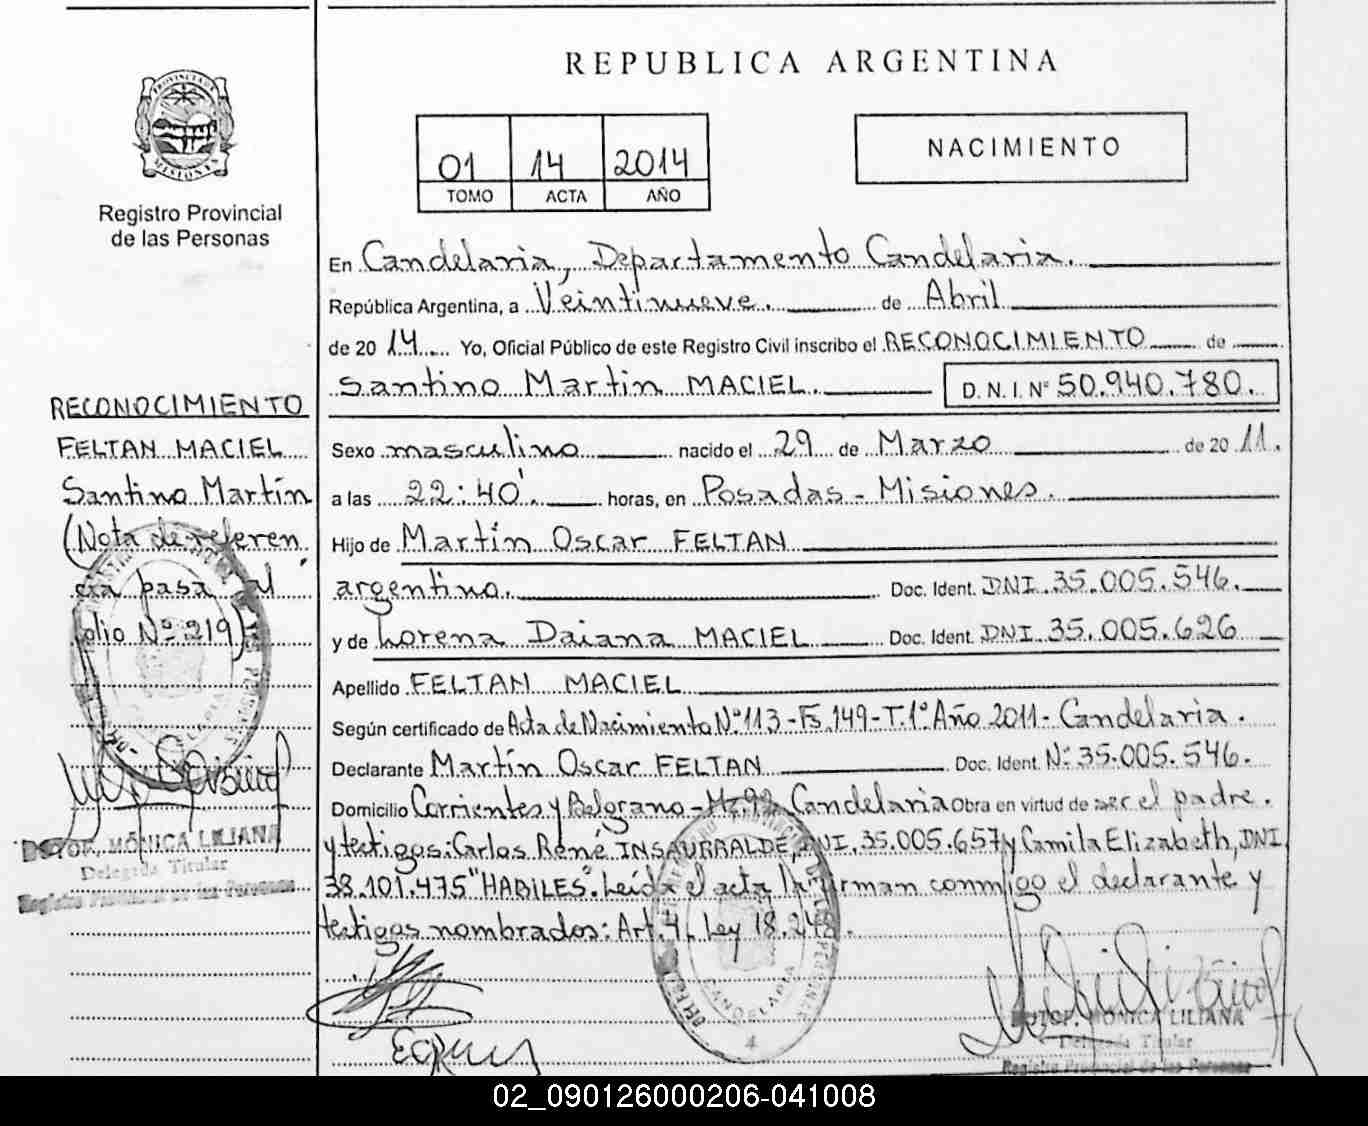 REPUBLICA ARGENTINA
PROVINCIA DE
MISIONES
Registro Provincial
de las Personas
01 14 2014
TOMO ACTA AÑO
NACIMIENTO
En Candelaria, Departamento Candelaria.
República Argentina, a Veintinueve. de Abril
de 2014 Yo, Oficial Público de este Registro Civil inscribo el RECONOCIMIENTO de
Santino Martin MACIEL. D.N.I. Nº 50.940.780.
RECONOCIMIENTO
FELTAN MACIEL
Santino Martín
(Nota de referen
cia pasa al
folio Nº 219)
Sexo masculino nacido el 29 de Marzo de 2011.
a las 22:40' horas, en Posadas - Misiones.
Hijo de Martín Oscar FELTAN
argentino. Doc. Ident. DNI. 35.005.546.
y de Lorena Daiana MACIEL Doc. Ident. DNI 35.005.626
Apellido FELTAN MACIEL
Según certificado de Acta de Nacimiento Nº 113 - Fs. 149 - T. 1º Año 2011 - Candelaria.
Declarante Martín Oscar FELTAN Doc. Ident. Nº 35.005.546.
Domicilio Corrientes y Belgrano - Mz. Candelaria Obra en virtud de ser el padre.
y testigos: Carlos René INSAURRALDE, DNI. 35.005.657 y Camila Elizabeth, DNI
38.101.475 "HABILES". Leída el acta la firman conmigo el declarante y
testigos nombrados: Art. 4 Ley 18.248.
MÓNICA LILIANA
Delegada Titular
Registro Provincial de las Personas
CANDELARIA
4
MÓNICA LILIANA
Delegada Titular
Registro Provincial de las Personas
02_090126000206-041008